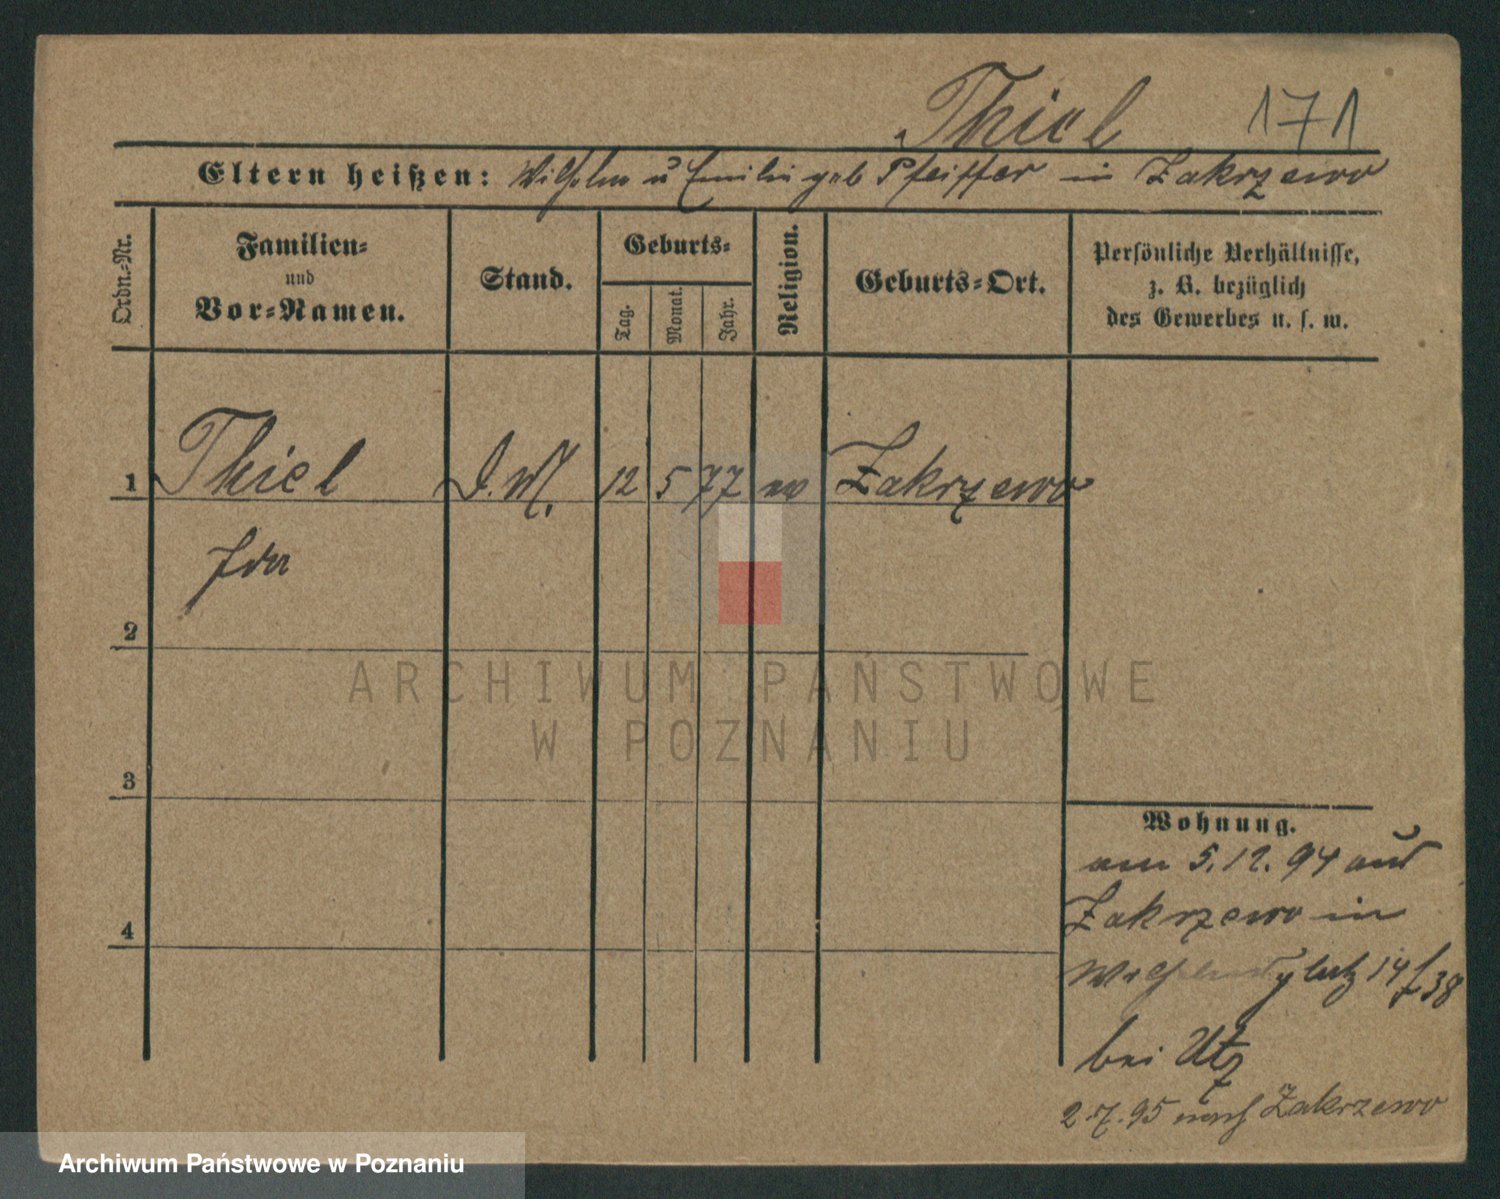 Thiel 171
Eltern heißen: Wilhelm u Emilie geb Pfeiffer in Zakrzewo
Ordn.-Nr.
Familien-
und
Vor-Namen.
Stand.
Geburts-
Tag.
Monat.
Jahr.
Religion.
Geburts-Ort.
Persönliche Verhältnisse,
z. B. bezüglich
des Gewerbes u. s. w.
1 Thiel D.M. 12 5 77 ev Zakrzewo
Ida
2
3
4
ARCHIWUM PAŃSTWOWE
W POZNANIU
Wohnung.
am 5.12.94 aus
Zakrzewo in
Wilhelmsplatz 14/38
bei Utz
2.7.95 nach Zakrzewo
Archiwum Państwowe w Poznaniu